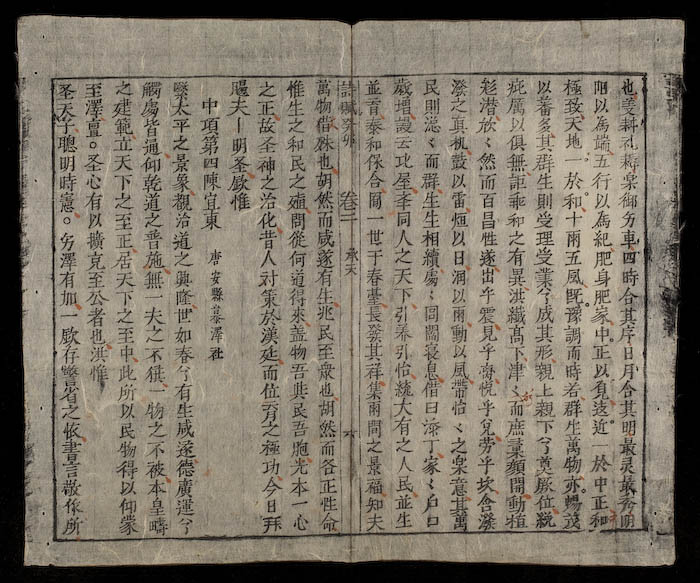 也姜耕礼耨樂御仿車四時合其序日月合其明最灵最秀明
以為端五行以為紀肥身肥家中正以負遠近 於中正和
極致天地一於和十雨五風旣豫調而時若群生萬物亦暢茂
以蕃多其群生則受理受業兮成其形親上親下兮奠厥位統
疵厲以俱無詎乖和之有異洪纖髙下津〻而庶彙類開動植
彰潜欣〻然而百昌甡遂出乎震見乎离悦乎兌劳乎坎含潑
潑之真机鼓以雷烜以日潤以雨動以風帶怡〻之樂意其萬
民則漁〻而群生生相續處〻同閭寝息借曰添丁家〻户口
歲增謾云比屋孝同人之天下引养引恬統大有之人民並生
並育泰和保合囿一世于春臺長發其祥集兩間之景福知夫
詩賦癸卯 卷二 承天 六
萬物偹殊也胡然而咸遂有生兆民至衆也胡然而各正性命
惟生之和民之殖問從何道得來盖物吾與民吾胞光本一心
之正故圣神之治化昔人对策於漢廷而位育之極功今日拜
颺夫明圣歟惟
中項第四陳宜東 唐安縣慕澤社
繄太平之景象觀治道之興隆世如春兮有生咸遂德廣運兮
觸處皆通仰乾道之普施無一夫之不獲一物之不被本皇疇
之建範立天下之至正居天下之至中此所以民物得以仰蒙
至澤亶。圣心有以擴克至公者也洪惟
圣天子聰明時憲。穷澤有加一歐存警省之依書言敬依所